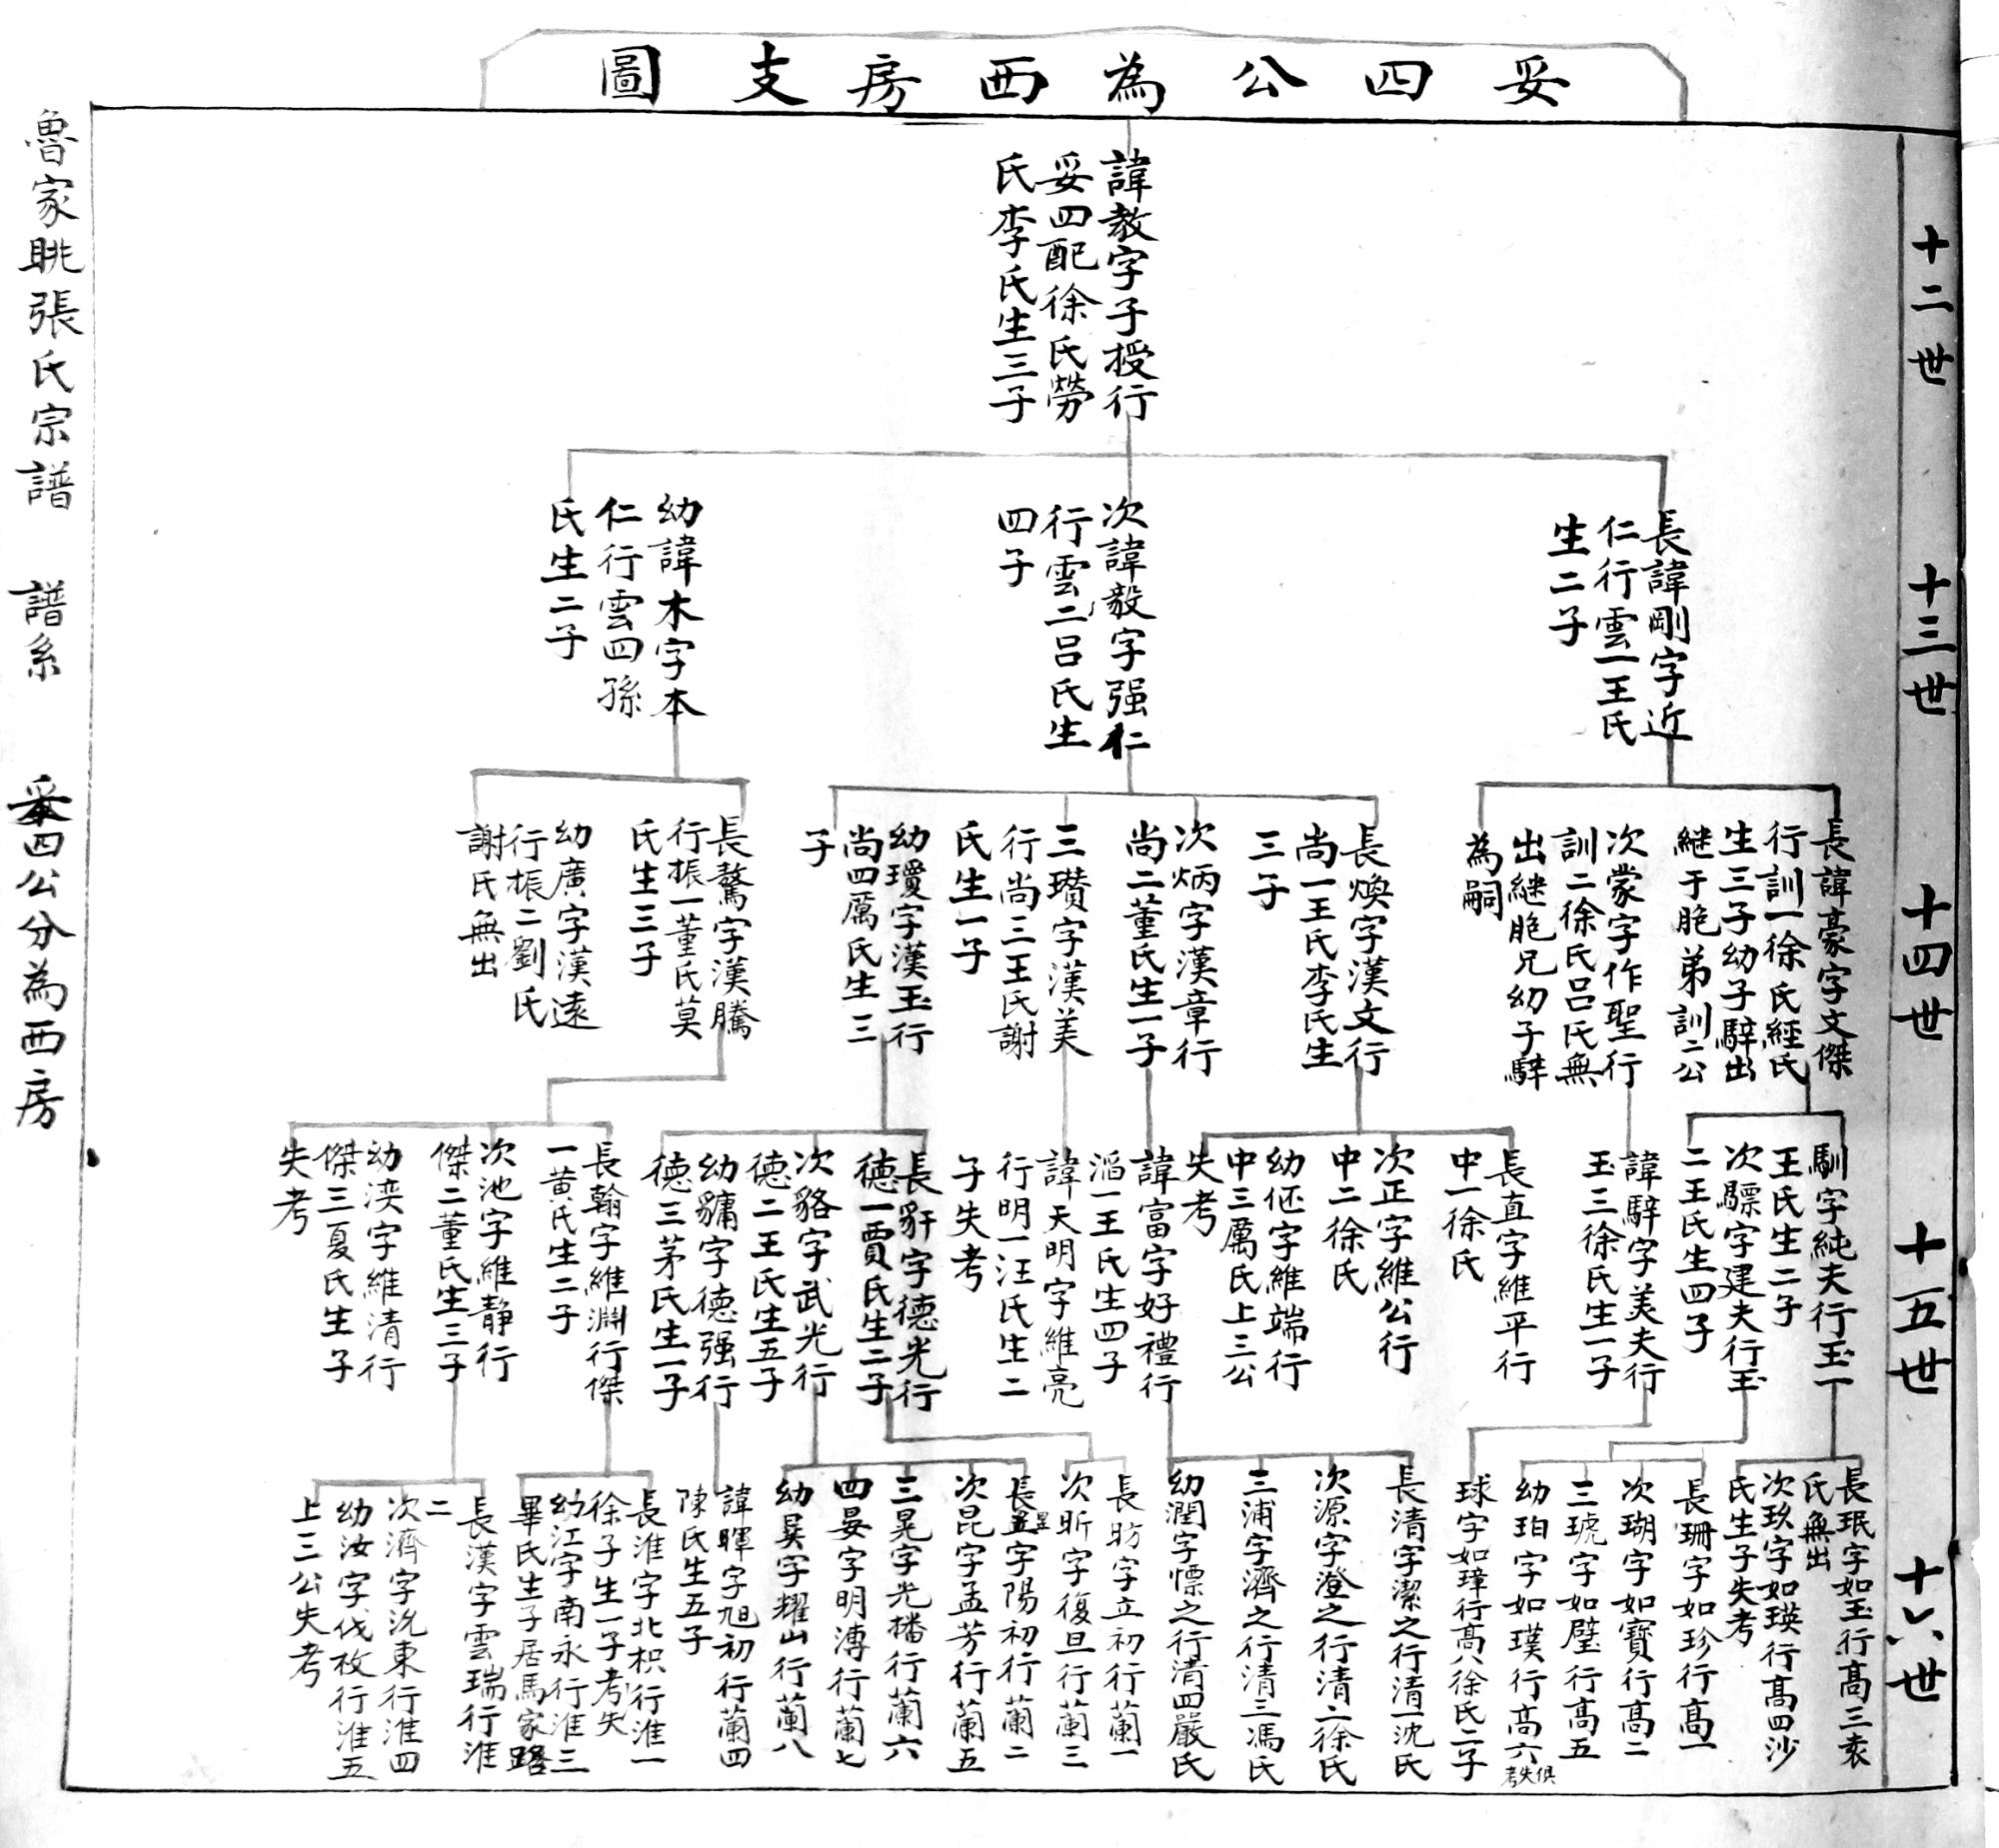 妥四公為西房支圖
十二世
諱教字子授行
妥四配徐氏勞
氏李氏生三子
十三世
長諱剛字近
仁行雲一王氏
生二子
次諱毅字强仁
行雲二吕氏生
四子
幼諱木字本
仁行雲四孫
氏生二子
十四世
長諱豪字文傑
行訓一徐氏經氏
生三子幼子騂出
継于胞弟訓二公
次蒙字作聖行
訓二徐氏吕氏無
出継胞兄幼子騂
為嗣
長煥字漢文行
尚一王氏李氏生
三子
次炳字漢章行
尚二董氏生一子
三瓚字漢美
行尚三王氏謝
氏生一子
幼瓊字漢玉行
尚四厲氏生三
子
長驁字漢騰
行振一董氏莫
氏生三子
幼廣字漢遠
行振二劉氏
謝氏無出
十五世
馴字純夫行玉一
王氏生二子
次驃字建夫行玉
二王氏生四子
諱騂字美夫行
玉三徐氏生一子
長直字維平行
中一徐氏
次正字維公行
中二徐氏
幼伾字維端行
中三厲氏上三公
失考
諱富字好禮行
滔一王氏生四子
諱天明字維亮
行明一汪氏生二
子失考
長豻字德光行
德一賈氏生二子
次貉字武光行
德二王氏生五子
幼貓字德强行
德三茅氏生一子
長翰字維淵行傑
一黄氏生二子
次池字維静行
傑二董氏生三子
幼渶字維清行
傑三夏氏生子
失考
十六世
長珉字如玉行高三袁
氏無出
次玖字如瑛行高四沙
氏生子失考
長珊字如珍行高一
次瑚字如寶行高二
三琥字如璧行高五
幼珀字如璞行高六俱失考
球字如璋行高八徐氏二子
長清字潔之行清一沈氏
次源字澄之行清二徐氏
三浦字濟之行清三馮氏
幼潤字慓之行清四嚴氏
長昉字立初行蘭一
次昕字復旦行蘭三
長昱字陽初行蘭二
次昆字孟芳行蘭五
三晃字光播行蘭六
四晏字明漙行蘭七
幼昊字耀山行蘭八
諱暉字旭初行蘭四
陳氏生五子
長淮字北枳行淮一
徐子生一子考失
幼江字南永行淮三
畢氏生子居馬家路
長漢字雲瑞行淮
二
次濟字沇東行淮四
幼汝字伐枚行淮五
上三公失考
魯家眺張氏宗譜 譜系 妥四公分為西房